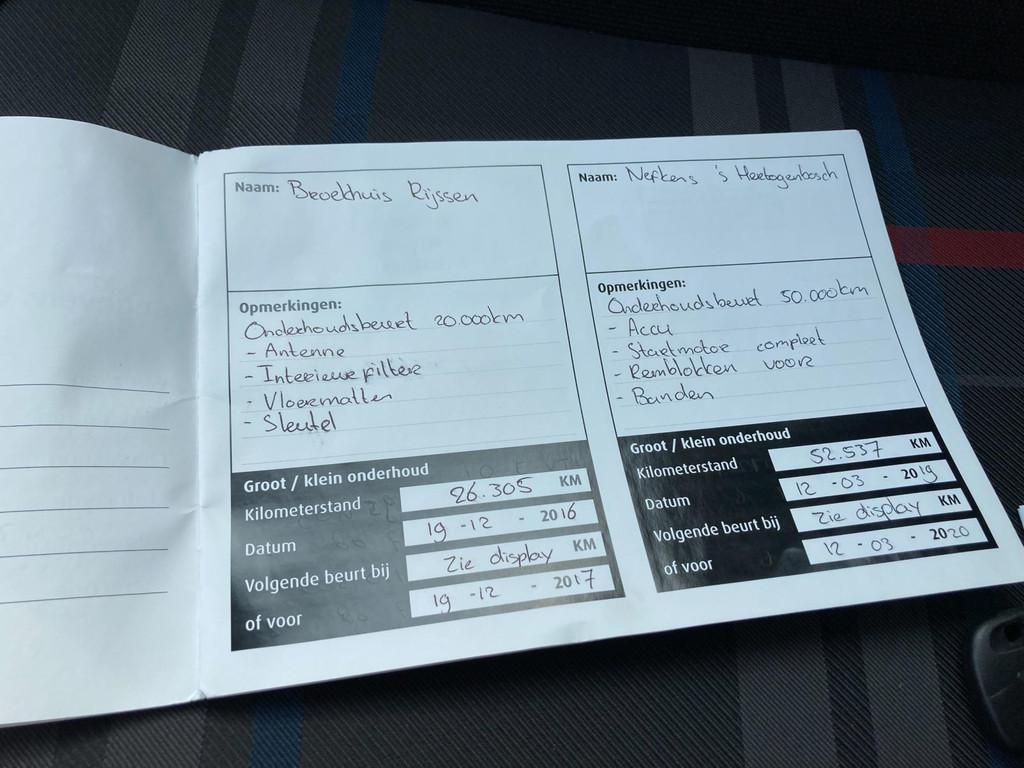 Naam: Broekhuis Rijssen
Opmerkingen:
Onderhoudsbeurt 20.000km
- Antenne
- Interieurfilter
- Vloermatten
- Sleutel
Groot / klein onderhoud
Kilometerstand 26.305 KM
Datum 19 - 12 - 2016
Volgende beurt bij Zie display KM
of voor 19 - 12 - 2017
Naam: Nefkens 's Hertogenbosch
Opmerkingen:
Onderhoudsbeurt 50.000km
- Accu
- Startmotor compleet
- Remblokken voor
- Banden
Groot / klein onderhoud
Kilometerstand 52.537 KM
Datum 12 - 03 - 2019
Volgende beurt bij Zie display KM
of voor 12 - 03 - 2020